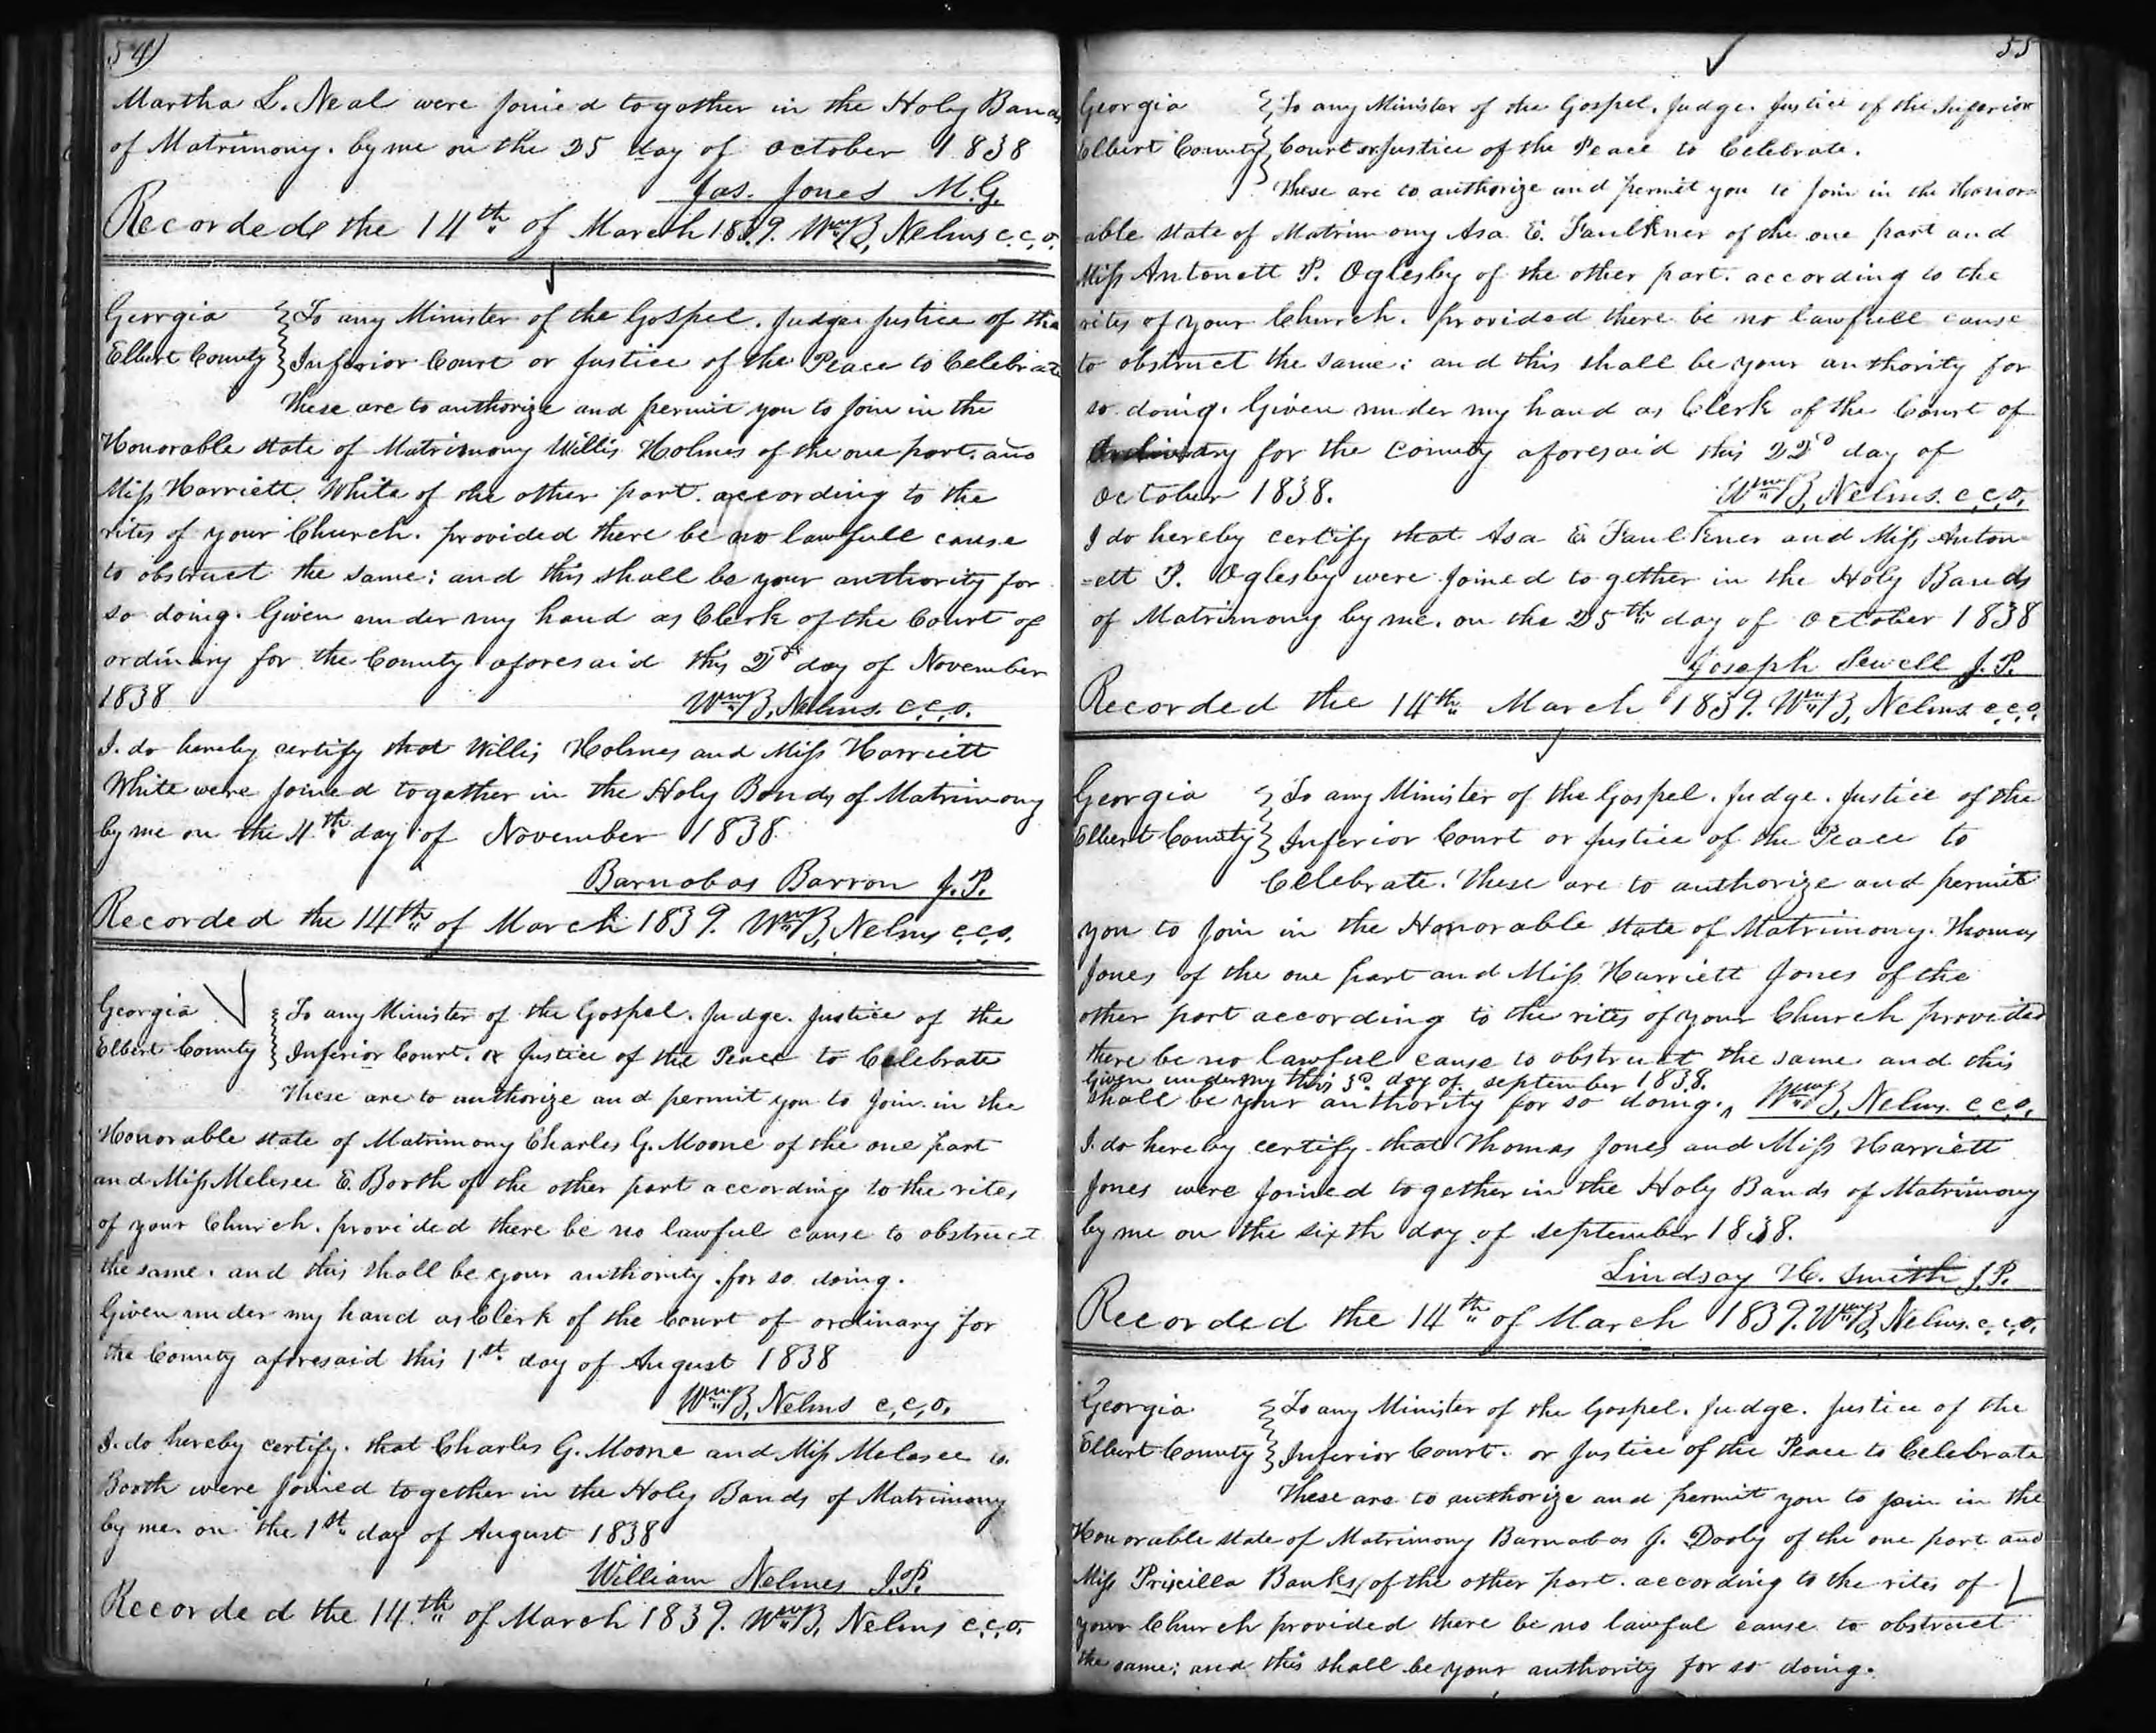 54)
Martha L. Neal were Joined togather in the Holy Bands
of Matrimony. by me on the 25 day of October 1838
Jas. Jones M.G.
Recorded the 14th of March 1839. Wm B, Nelms c.c.o.
Georgia To any Minister of the Gospel. Judge. Justice of the
Elbert County Inferior Court or Justice of the Peace to Celebrate
These are to authorize and permit you to Join in the
Honorable state of Matrimony Willis Holmes of the one part. and
Miss Harriett White of the other part. according to the
rites of your Church. provided there be no lawfull cause
to obstruct the same; and this shall be your authority for
so doing. Given under my hand as Clerk of the Court of
ordinary for the County aforesaid this day of November
1838 Wm B, Nelms. c.c.o.
I. do hereby certify that Willis Holmes and Miss Harriett
White were Joined togather in the Holy Bonds of Matrimony
by me on the 4th day of November 1838.
Barnabas Barron J.P.
Recorded the 14th of March 1839. Wm B, Nelms c.c.o.
Georgia To any Minister of the Gospel. Judge. Justice of the
Elbert County Inferior Court. or Justice of the Peace to Celebrate
These are to authorize and permit you to Join in the
Honorable state of Matrimony Charles G. Moone of the one part
and Miss Melesee E. Booth of the other part according to the rites
of your Church. provided there be no lawful cause to obstruct
the same. and this shall be your authority for so doing.
Given under my hand as Clerk of the Court of ordinary for
the County aforesaid this 1st day of August 1838
Wm B, Nelms c.c.o.
I. do hereby certify. that Charles G. Moone and Miss Melesee
Booth were Joined together in the Holy Bands of Matrimony
by me. on the 1st day of August 1838
William Nelmes J.P.
Recorded the 14th of March 1839. Wm B, Nelms c.c.o.
55
Georgia To any Minister of the Gospel. Judge. Justice of the Inferior
Elbert County Court or Justice of the Peace to Celebrate.
These are to authorize and permit you to Join in the Honor=
able state of Matrimony Asa E. Faulkner of the one part and
Miss Antonett P. Oglesby of the other part. according to the
rites of your Church. provided there be no lawfull cause
to obstruct the same; and this shall be your authority for
so doing. Given under my hand as Clerk of the Court of
Ordinary for the County aforesaid this 22d day of
October 1838. Wm B, Nelms. c.c.o.
I do hereby certify that Asa E. Faulkner and Miss Anton
=ett P. Oglesby were Joined together in the Holy Bands
of Matrimony by me. on the 25th day of October 1838
Joseph Sewell J.P.
Recorded the 14th March 1839. Wm B, Nelms c.c.o.
Georgia To any Minister of the Gospel. Judge. Justice of the
Elbert County Inferior Court or Justice of the Peace to
Celebrate. These are to authorize and permit
you to Join in the Honorable state of Matrimony. Thomas
Jones of the one part and Miss Harriett Jones of the
other part according to the rites of your Church provided
there be no lawful cause to obstruct the same and this
Given under my this 3d day of september 1838.
shall be your authority for so doing. ^ Wm B, Nelms. c.c.o.
I. do hereby certify that Thomas Jones and Miss Harriett
Jones were Joined together in the Holy Bands of Matrimony
by me on the sixth day of september 1838.
Lindsay H. Smith J.P.
Recorded the 14th of March 1839. Wm B, Nelms. c.c.o.
Georgia To any Minister of the Gospel. Judge. Justice of the
Elbert County Inferior Court. or Justice of the Peace to Celebrate
These are to authorize and permit you to Join in the
Honorable state of Matrimony Barnabas J. Dooly of the one part and
Miss Priscilla Banks of the other part. according to the rites of
your Church provided there be no lawful cause to obstruct
the same; and this shall be your authority for so doing.